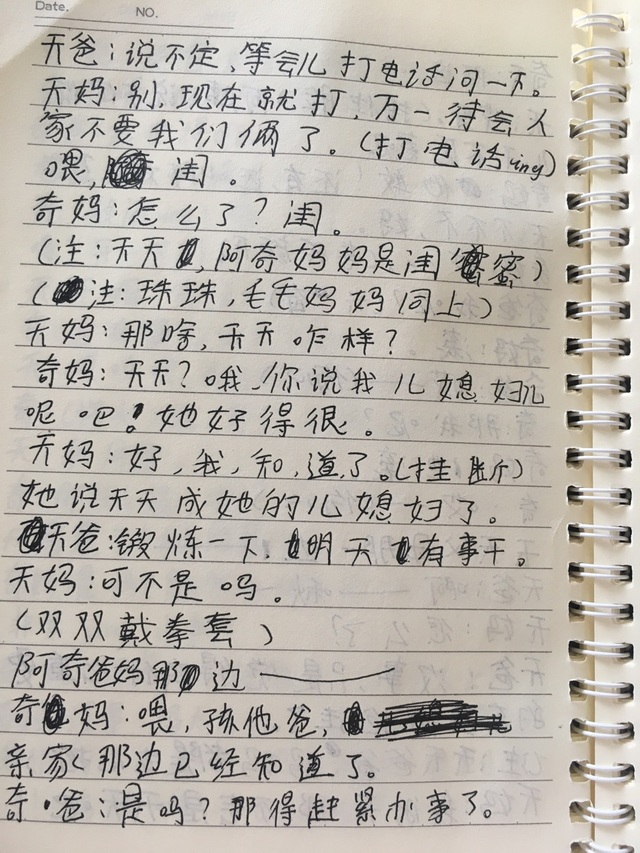 Date.
NO.
天爸：说不定，等会儿打电话问一下。
天妈：别，现在就打，万一待会人
家不要我们俩了。（打电话ing）
喂，闺。
奇妈：怎么了？闺。
（注：天天，阿奇妈妈是闺蜜）
（注：珠珠，毛毛妈妈同上）
天妈：那啥，天天咋样？
奇妈：天天？哦，你说我儿媳妇儿
呢吧！她好得很。
天妈：好，我，知，道，了。（挂断）
她说天天成她的儿媳妇了。
天爸：锻炼一下，明天有事干。
天妈：可不是吗。
（双双戴拳套）
阿奇爸妈那边——
奇妈：喂，孩他爸，
亲家那边已经知道了。
奇爸：是吗？那得赶紧办事了。